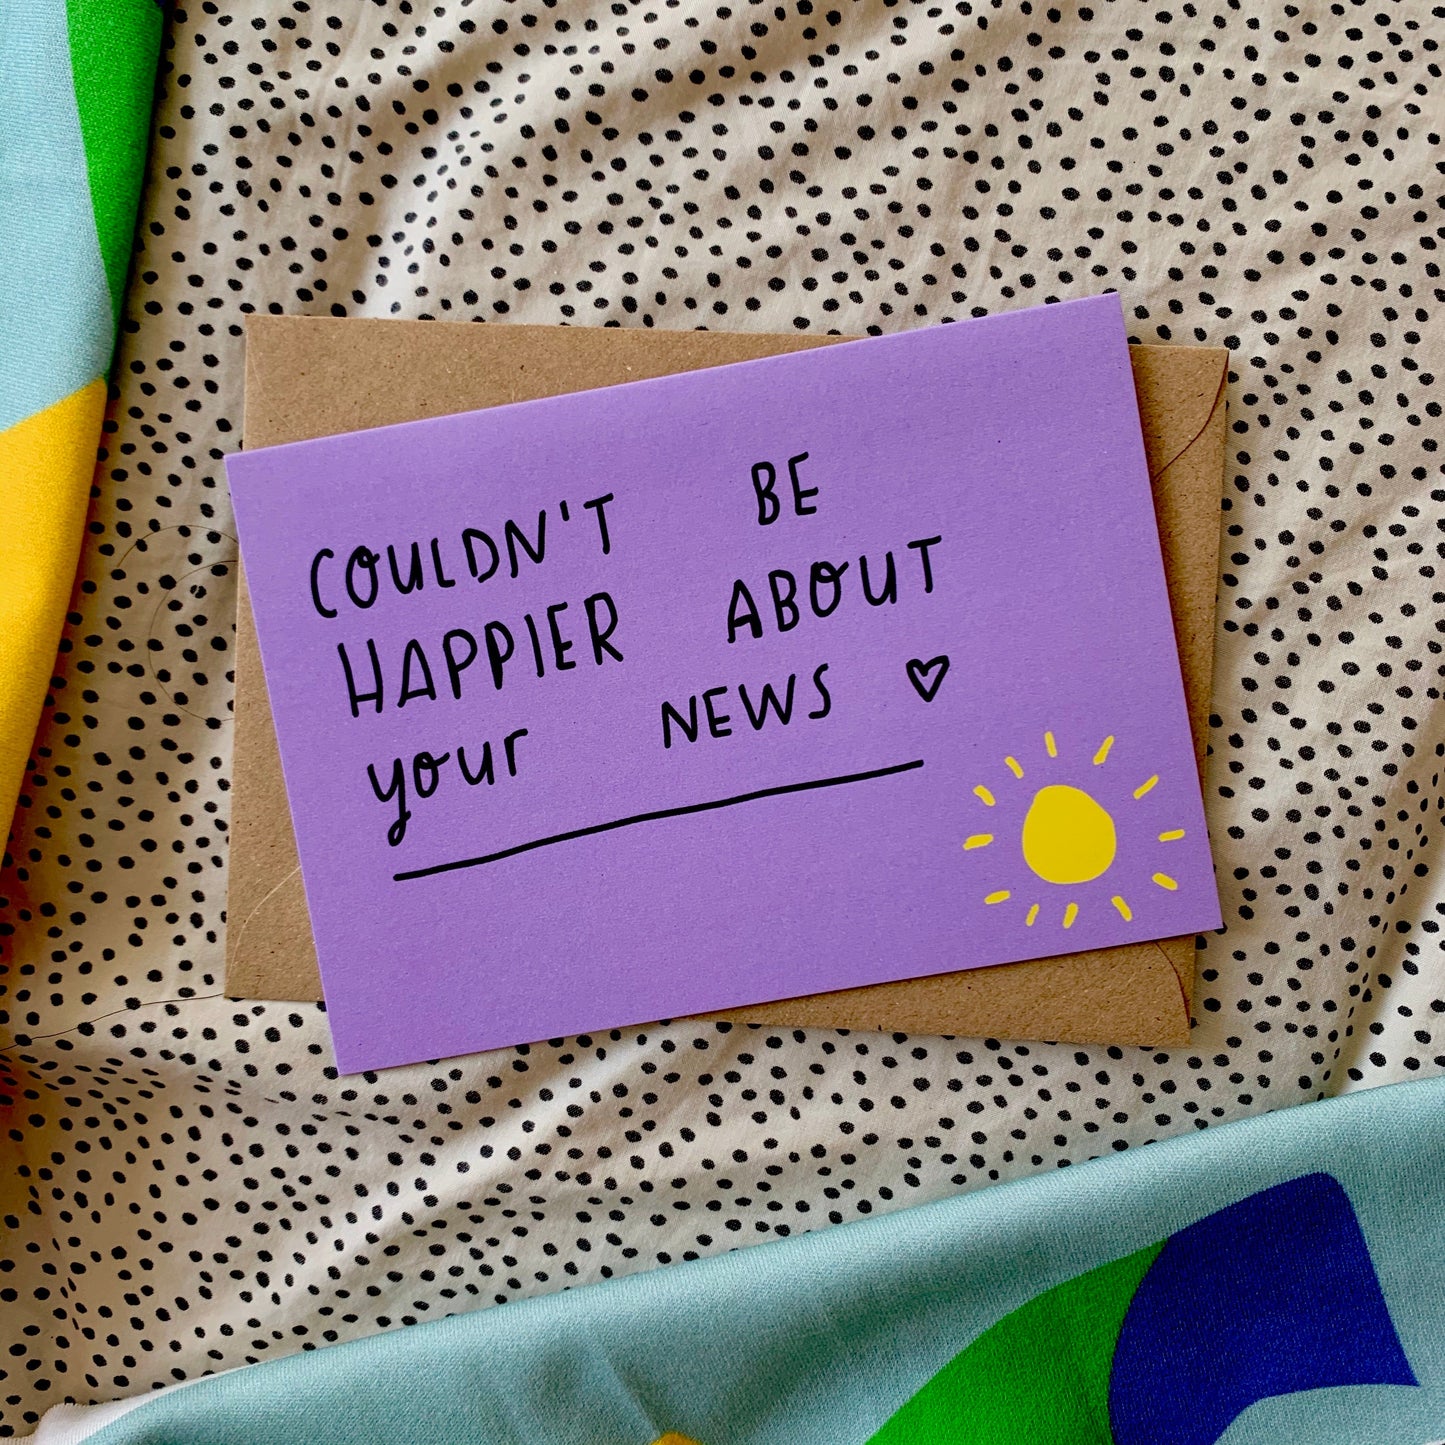 COULDN'T BE
HAPPIER ABOUT
your NEWS ♡